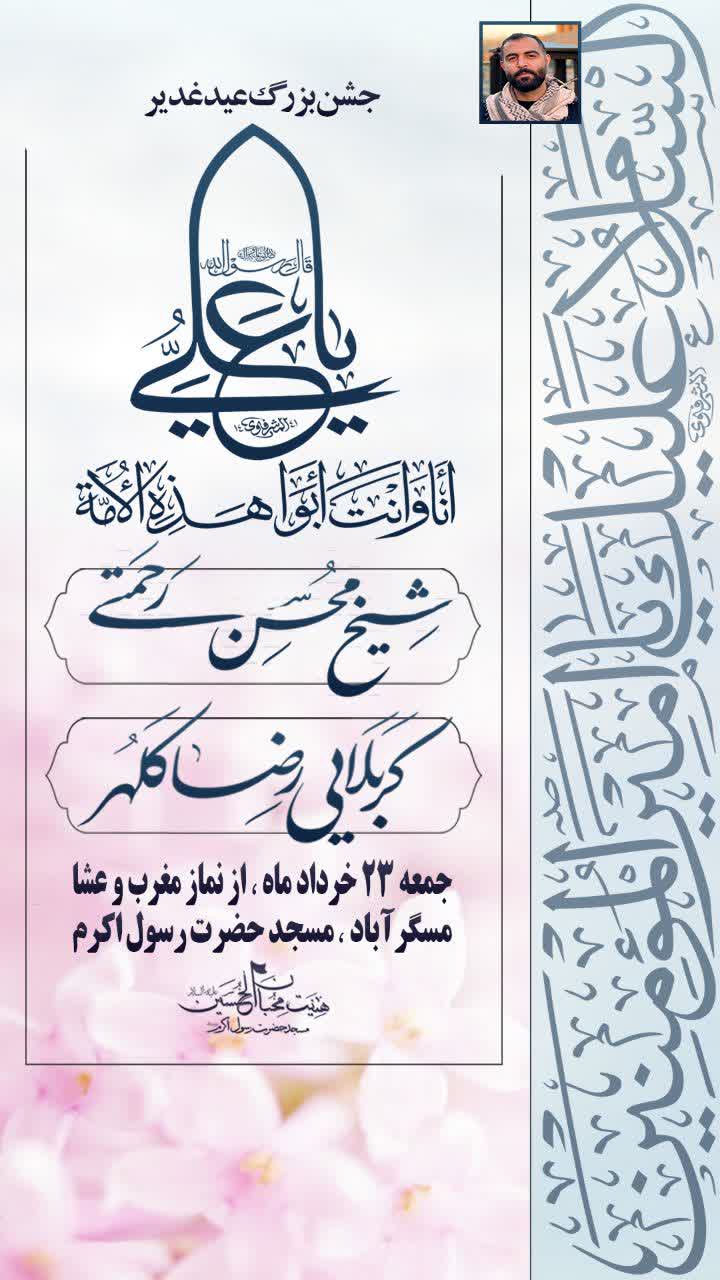 جشن بزرگ عید غدیر
قال رسول الله
یا علی
أنا وأنت أبوا هذه الأمة
شیخ محسن رحمتی
کربلایی رضا کلهر
جمعه ۲۳ خرداد ماه ، از نماز مغرب و عشا
مسگر آباد ، مسجد حضرت رسول اکرم
هیئت محبان الحسین
مسجد حضرت رسول اکرم
السلام علیک یا امیرالمؤمنین